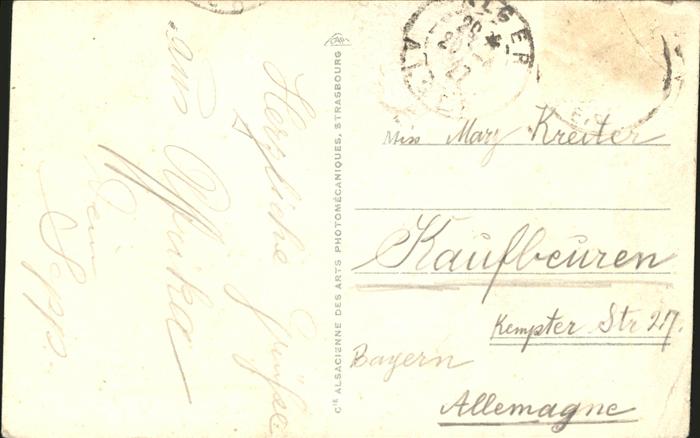 Herzliche Grüße
aus Afrika
Dein
Sepp.
Cie ALSACIENNE DES ARTS PHOTOMÉCANIQUES, STRASBOURG
ALGER
Miss Mary Kreiter
Kaufbeuren
Kempter Str 27.
Bayern
Allemagne